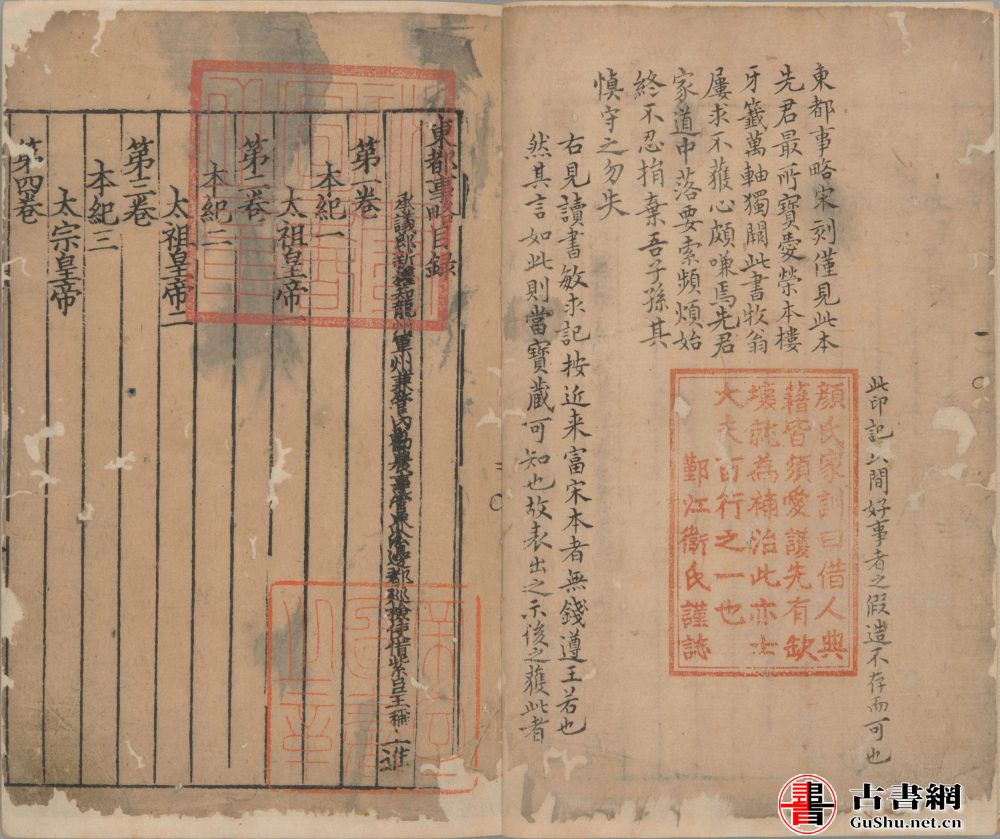 東都事略宋刻僅見此本
先君最所寶愛榮本樓
牙籤萬軸獨闕此書牧翁
屢求不獲心頗嗛焉先君
家道中落要索頻煩始
終不忍捐棄吾子孫其
慎守之勿失
右見讀書敏求記按近来富宋本者無錢遵王若也
然其言如此則當寶藏可知也故表出之示後之獲此者
此印記人間好事者之假造不存而可也
顏氏家訓曰借人典
籍皆須愛護先有欽
壞就為補治此亦士
大夫百行之一也
鄞江衞氏謹誌
東都事略目録
承議郎新權知龍州軍州兼管内勸農事管界沿邊都巡檢使借紫臣王稱上進
第一卷
本紀一
太祖皇帝一
第二卷
本紀二
太祖皇帝二
第三卷
本紀三
太宗皇帝
第四卷
古書網
GuShu.net.cn